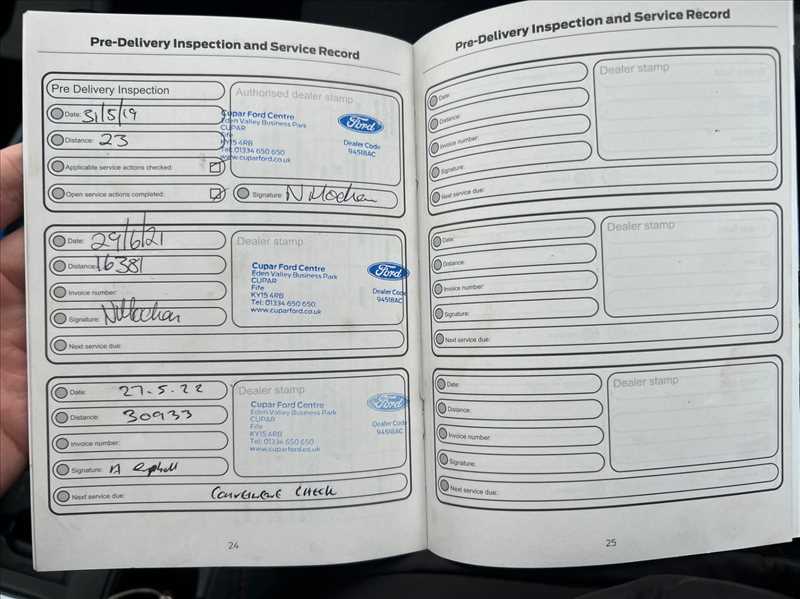 Pre-Delivery Inspection and Service Record
Pre Delivery Inspection
Date: 31/5/19
Distance: 23
Applicable service actions checked:
Open service actions completed:
Authorised dealer stamp
Cupar Ford Centre
Eden Valley Business Park
CUPAR
Fife
KY15 4RB
Tel: 01334 650 650
www.cuparford.co.uk
Ford
Dealer Code
94518AC
Signature:
Date: 29/6/21
Distance: 16381
Invoice number:
Signature:
Next service due:
Dealer stamp
Cupar Ford Centre
Eden Valley Business Park
CUPAR
Fife
KY15 4RB
Tel: 01334 650 650
www.cuparford.co.uk
Ford
Dealer Code
94518AC
Date: 27-5-22
Distance: 30933
Invoice number:
Signature:
Next service due: CHECK
Dealer stamp
Cupar Ford Centre
Eden Valley Business Park
CUPAR
Fife
KY15 4RB
Tel: 01334 650 650
www.cuparford.co.uk
Ford
Dealer Code
94518AC
24
Pre-Delivery Inspection and Service Record
Date:
Distance:
Invoice number:
Signature:
Next service due:
Dealer stamp
Date:
Distance:
Invoice number:
Signature:
Next service due:
Dealer stamp
Date:
Distance:
Invoice number:
Signature:
Next service due:
Dealer stamp
25